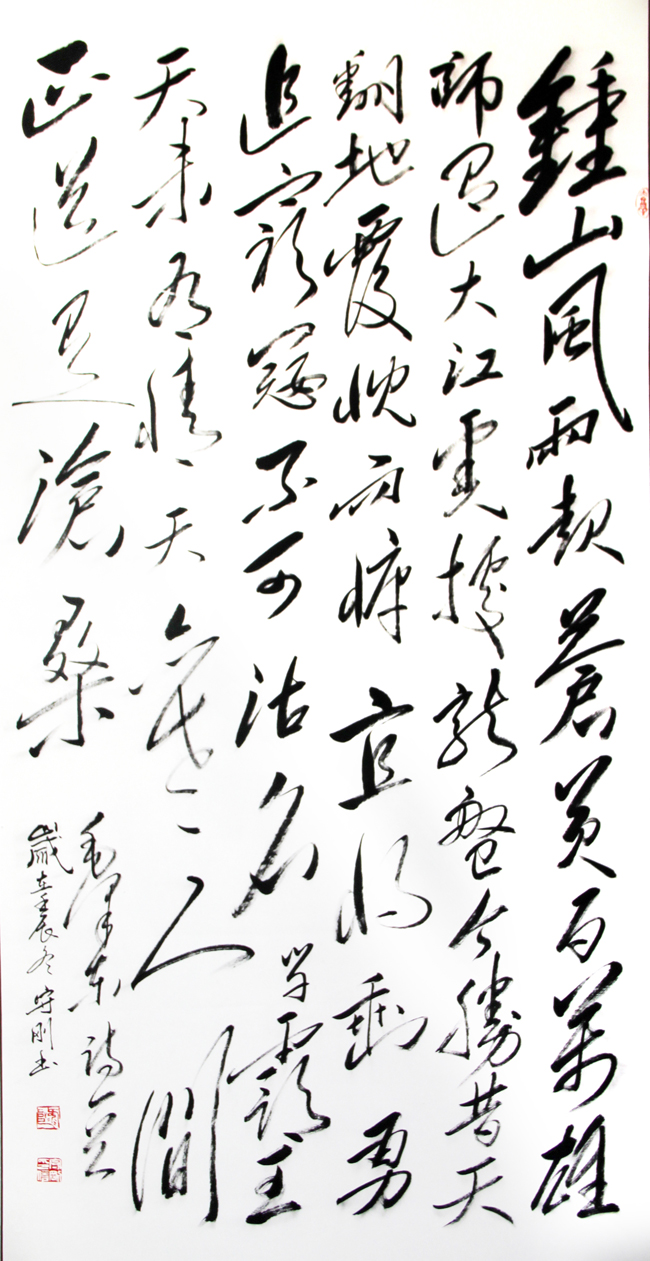 鍾山風雨起蒼黃百萬雄
師過大江虎據龍盤今勝昔天
翻地覆慨而慷宜將剩勇
追窮寇不可沽名學霸王
天若有情天亦老人間
正道是滄桑
毛澤東詩
歲在壬辰冬守刚书